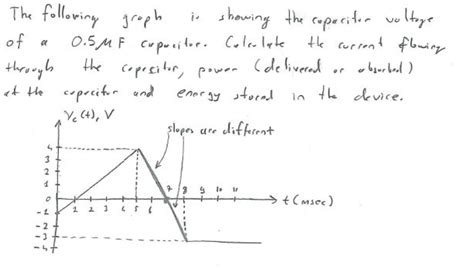 The following graph is showing the capacitor voltage
of a 0.5 μF capacitor. Calculate the current flowing
through the capacitor, power (delivered or absorbed)
at the capacitor and energy stored in the device.
Vc(t), V
slopes are different
4
3
2
1
0
-1
-2
-3
-4
1 2 3 4 5 6 7 8 9 10 11
t (msec)